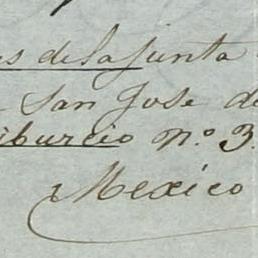 es de la Junta
San Jose de
iburcio nº 3.
Mexico